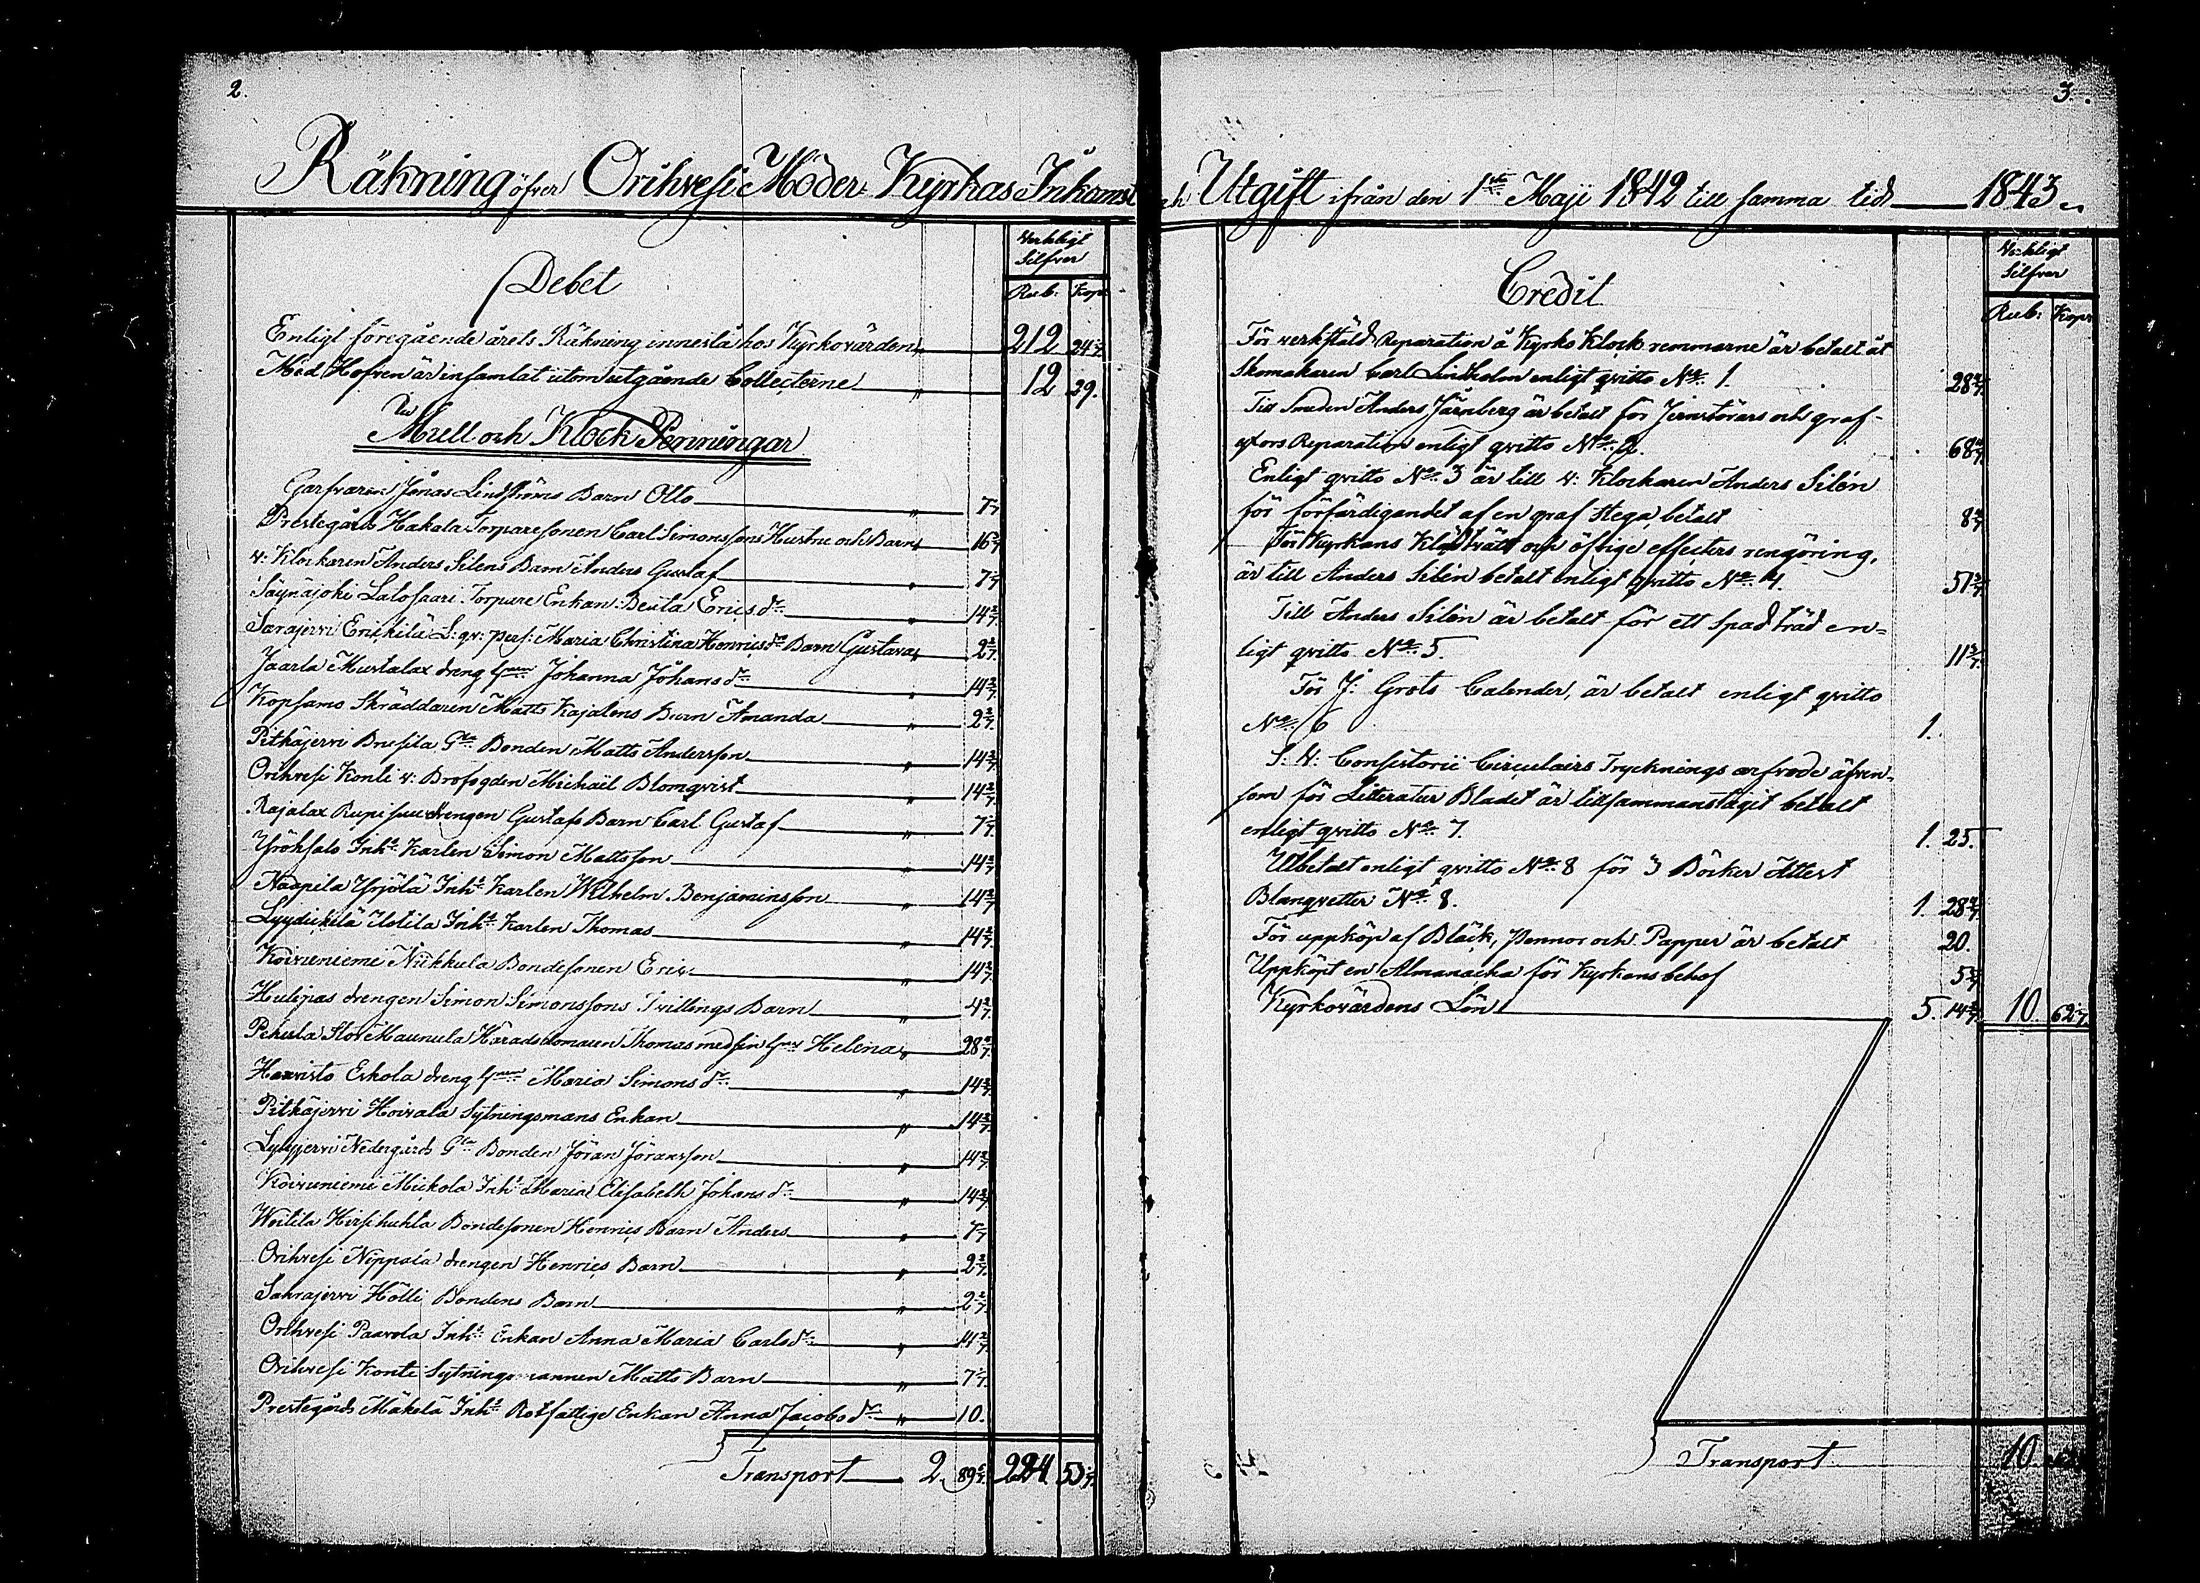 2.
Räkning öfver Orihvesi Moder Kyrkas Inkomst
Verkligt
Silfver
Debet
Rub: Kop:
Enligt föregående årets Räkning innestå hos Kyrkovärden 212 24
Med Hofven är insamlat utom utgående Collecterne " 12 29.
Mull och Klock Penningar
Garfvaren Jonas Lindströms Barn Otto " 7 1/7
Prestegårds Hakala Torparesonen Carl Simonssons Hustru och Barn 16
v: Klockaren Anders Silens Barn Anders Gustaf " 7 1/7
Säynäjoki Lalosaari Torpare Enkan Beata Erics dr " 14 2/7
Sarajervi Erickilä L: qv: pers: Maria Christina Henrics dr Barn Gustava 2 2/7
Jaarla Mustalax dreng Johanna Johans dr " 14 2/7
Kopsamo Skräddaren Matts Kajalens Barn Amanda " 2 2/7
Pitkäjervi Bonden Matts Andersson " 14 2/7
Orihvesi Konti v: Brofogden Michaël Blomqvist " 14 2/7
Rajalax drengen Gustafs Barn Carl Gustaf " 7 1/7
Yröhsalo Inhs Karlen Simon Mattsson " 14 2/7
Naapila Yrjölä Inhs Karlen Wilhelm Benjaminsson " 14 2/7
Lyydickilä Uotila Inhs Karlen Thomas " 14 2/7
Koivuniemi Niikkula Bondesonen Eric " 14 2/7
Hulipas drengen Simon Simonssons Tvillings Barn " 4 4/7
Pehula Stor Maunula Häradsdomaren Thomas med sin Helena " 28 4/7
Haavisto Eskola dreng Maria Simons dr " 14 2/7
Pitkäjervi Hoivala Sytningsmans Enkan " 14 2/7
Lylyjervi Nedergårds Bonden Jöran Jöransson " 14 2/7
Koivuniemi Mickola Inhs Maria Elisabeth Johans dr " 14 2/7
Woitila Hirsikuhta Bondesonen Henrics Barn Anders " 7 1/7
Orihvesi Nippala drengen Henrics Barn " 2 2/7
Sahrajervi Hölli Bondens Barn " 2 2/7
Orihvesi Paavola Inhs Enkan Anna Maria Carls dr " 14 2/7
Orihvesi Konti Sytningsmannen Matts Barn " 7 1/7
Prestegårds Mäkelä Inhs Rotfattige Enkan Anna Jacobs dr " 10.
Transport 2. 89 224 53
3.
och Utgift ifrån den 1ste Maji 1842 till samma tid 1843.
Verkligt
Silfver
Credit
Rub: Kop:
För verkstäld Reparation å Kyrko Klock remmarne är betalt åt
Skomakaren Carl Lindholm enligt qvitto No 1. 28 4/7
Till Smeden Anders Järnberg är betalt för Jernstörars och graf-
Reparation enligt qvitto No 2. 68 4/7
Enligt qvitto No 3 är till v: Klockaren Anders Silén
för förfärdigandet af en graf stega betalt 8 4/7
För Kyrkans Klädtvätt och öfrige effecters rengöring,
är till Anders Silén betalt enligt qvitto No 4. 51 3/7
Till Anders Silén är betalt för ett spad träd en-
ligt qvitto No 5. 11 3/7
För J: Grots Calender, är betalt enligt qvitto
No 6 1.
S: V: Consistorii Circulairs Trycknings arfvode äfven-
som för Litteratur Bladet är tillsammanstagit betalt
enligt qvitto No 7. 1. 25.
Utbetalt enligt qvitto No 8 för 3 Böcker Attest
Blanqvetter No 8. 1. 28 4/7
För uppköp af Bläck, Pennor och Papper är betalt 20.
Uppköpt en Almanacka för Kyrkans behof 5 5/7
Kyrkovärdens Lön 5. 14 2/7 10. 62
Transport 10.